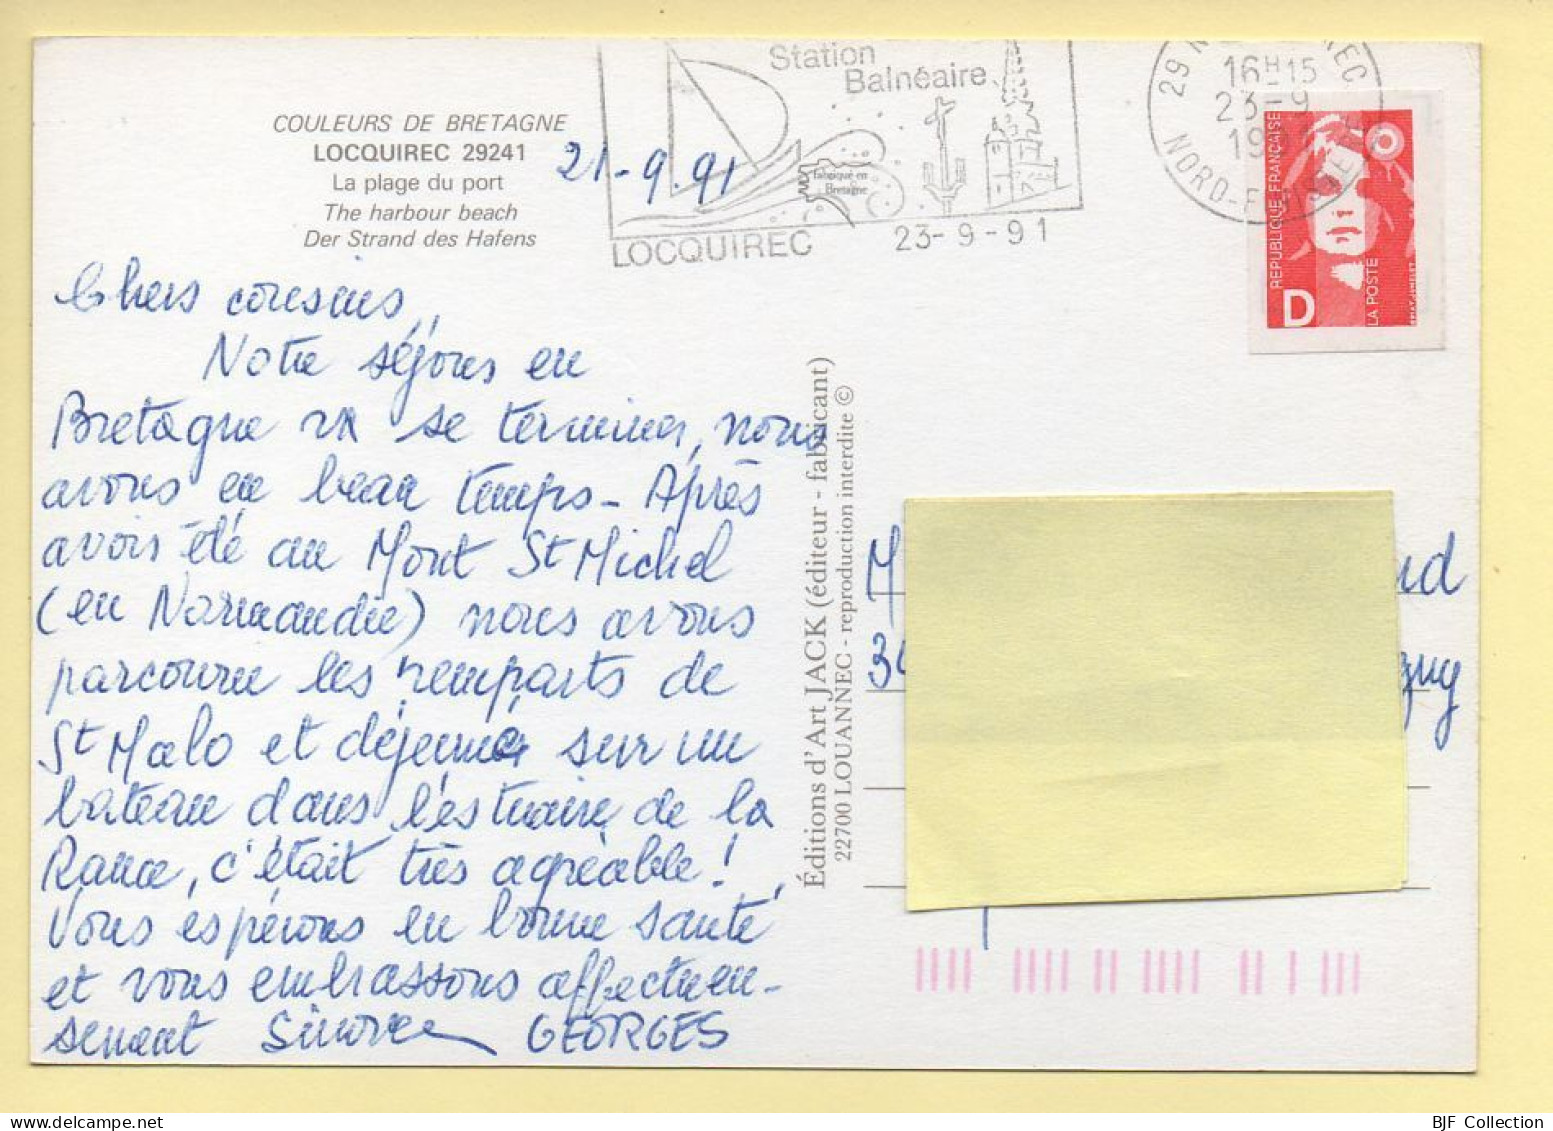 COULEURS DE BRETAGNE
LOCQUIREC 29241
La plage du port
The harbour beach
Der Strand des Hafens
21-9.91
Station
Balnéaire
fabriqué en
Bretagne
LOCQUIREC 23-9-91
16H15
23-9
29
NORD-F
RÉPUBLIQUE FRANÇAISE
D
LA POSTE
Chers cousins,
Notre séjour en
Bretagne va se terminer, nous
avons eu beau temps - Après
avoir été au Mont St Michel
(en Normandie) nous avons
parcouru les remparts de
St Malo et déjeuné sur un
bateau dans l'estuaire de la
Rance, c'était très agréable !
Vous espérons en bonne santé
et vous embrassons affectueu-
sement Simone GEORGES
Éditions d'Art JACK (éditeur - fabricant)
22700 LOUANNEC - reproduction interdite ©
M nd
gny
BJF Collection